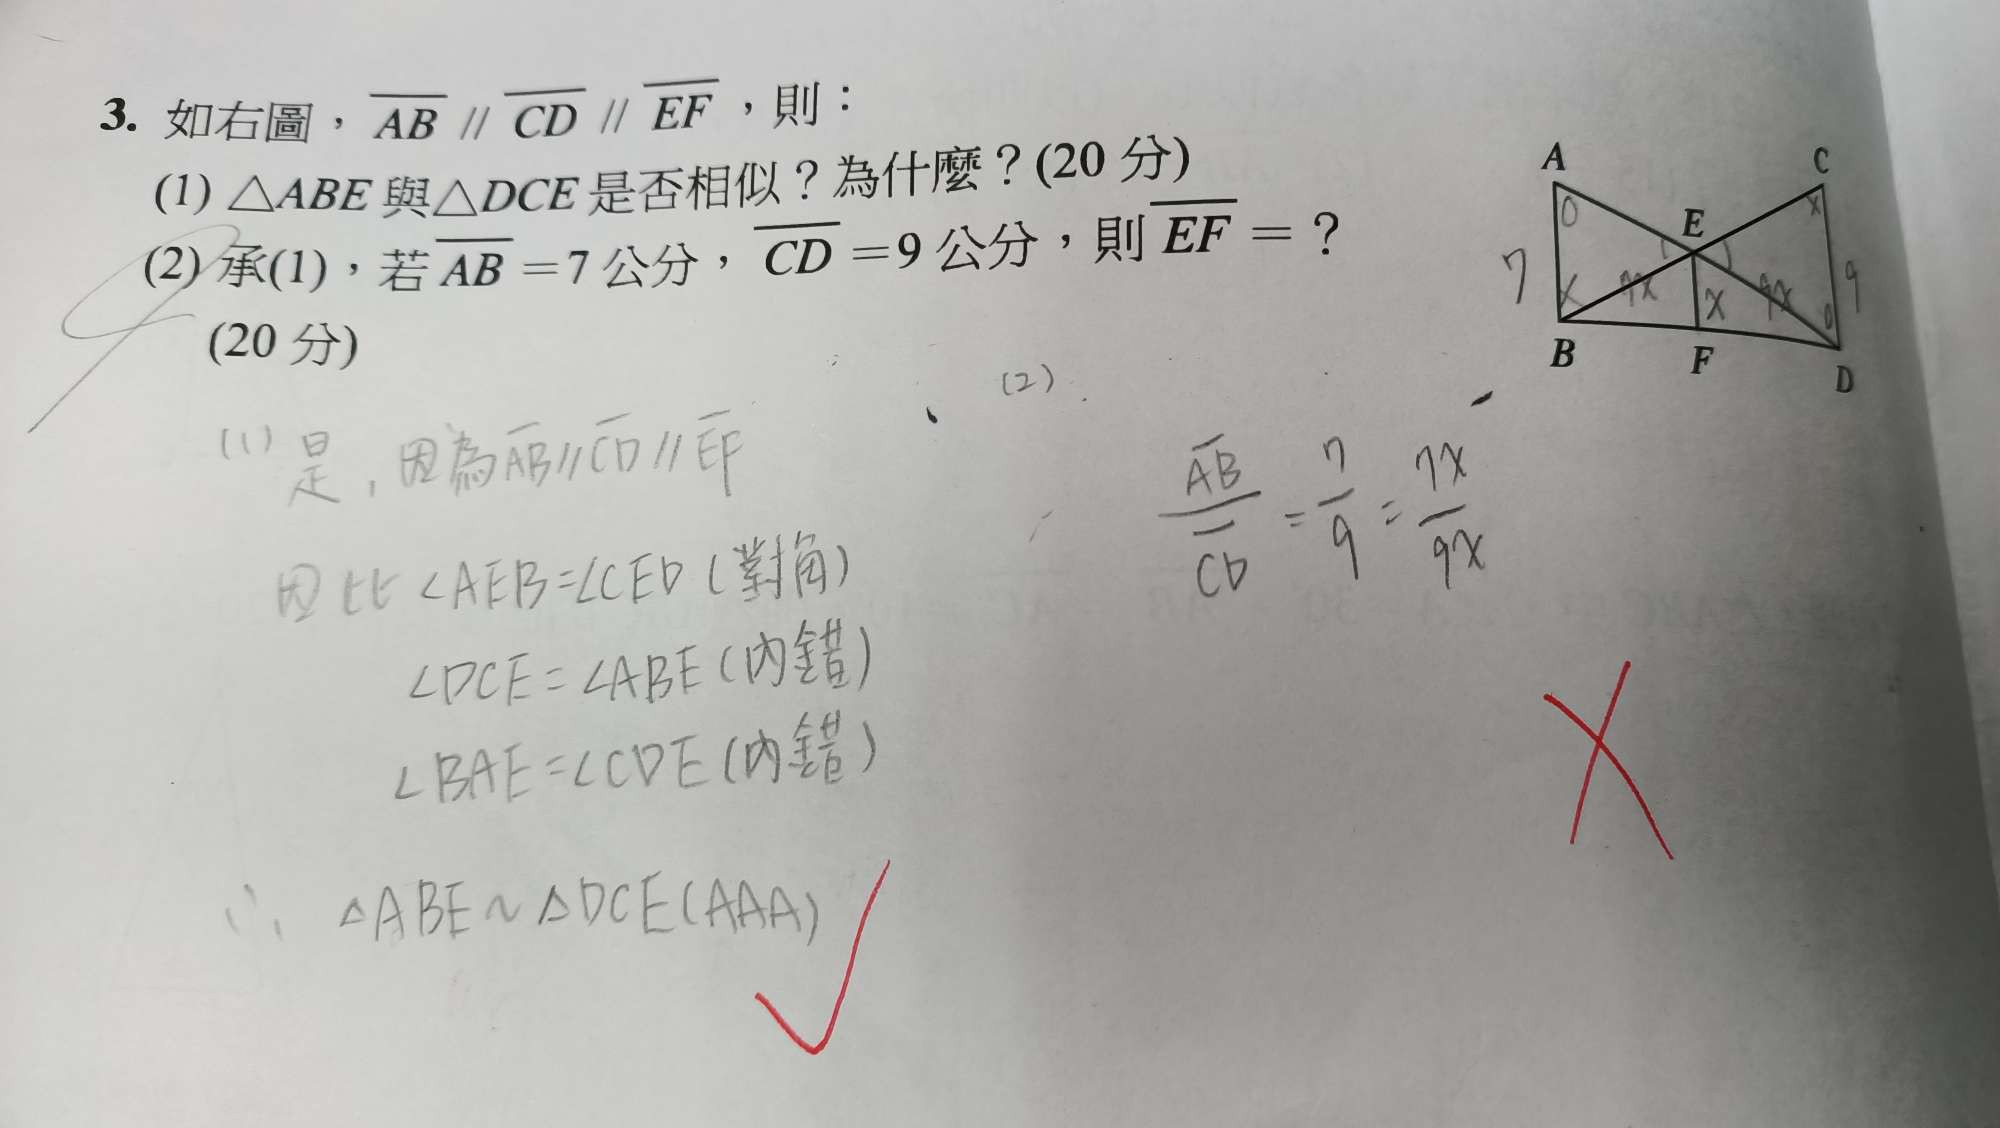 3. 如右圖，AB // CD // EF，則：
(1) △ABE 與△DCE 是否相似？為什麼？(20 分)
(2) 承(1)，若 AB＝7 公分，CD＝9 公分，則 EF＝？
(20 分)
A
C
E
7
7x
x
9x
9
B
F
D
(1) 是，因為AB//CD//EF
因此 ∠AEB=∠CED (對角)
∠DCE=∠ABE (內錯)
∠BAE=∠CDE (內錯)
∴ △ABE~△DCE(AAA)
(2)
AB/CD = 7/9 = 7x/9x